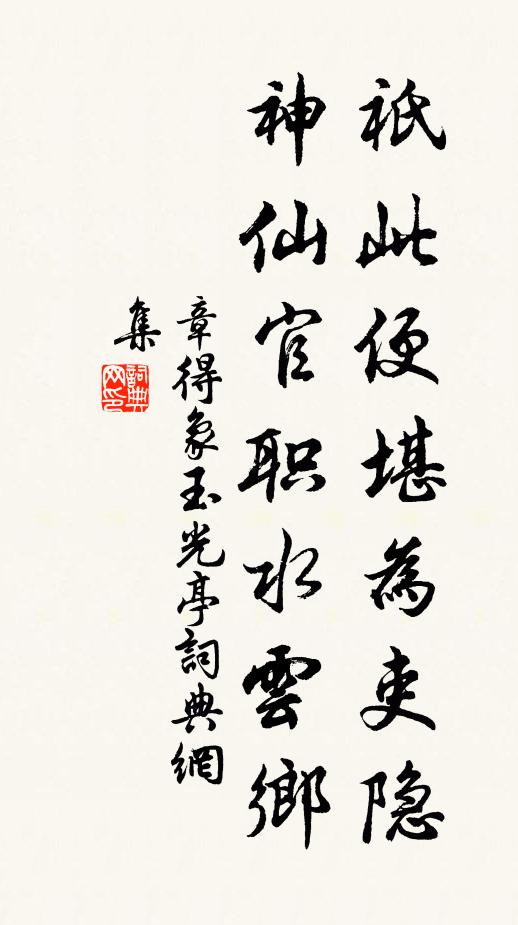 祇此便堪為吏隐
神仙官职水雲鄉
章得象玉光亭詞典網
集
詞典
网印